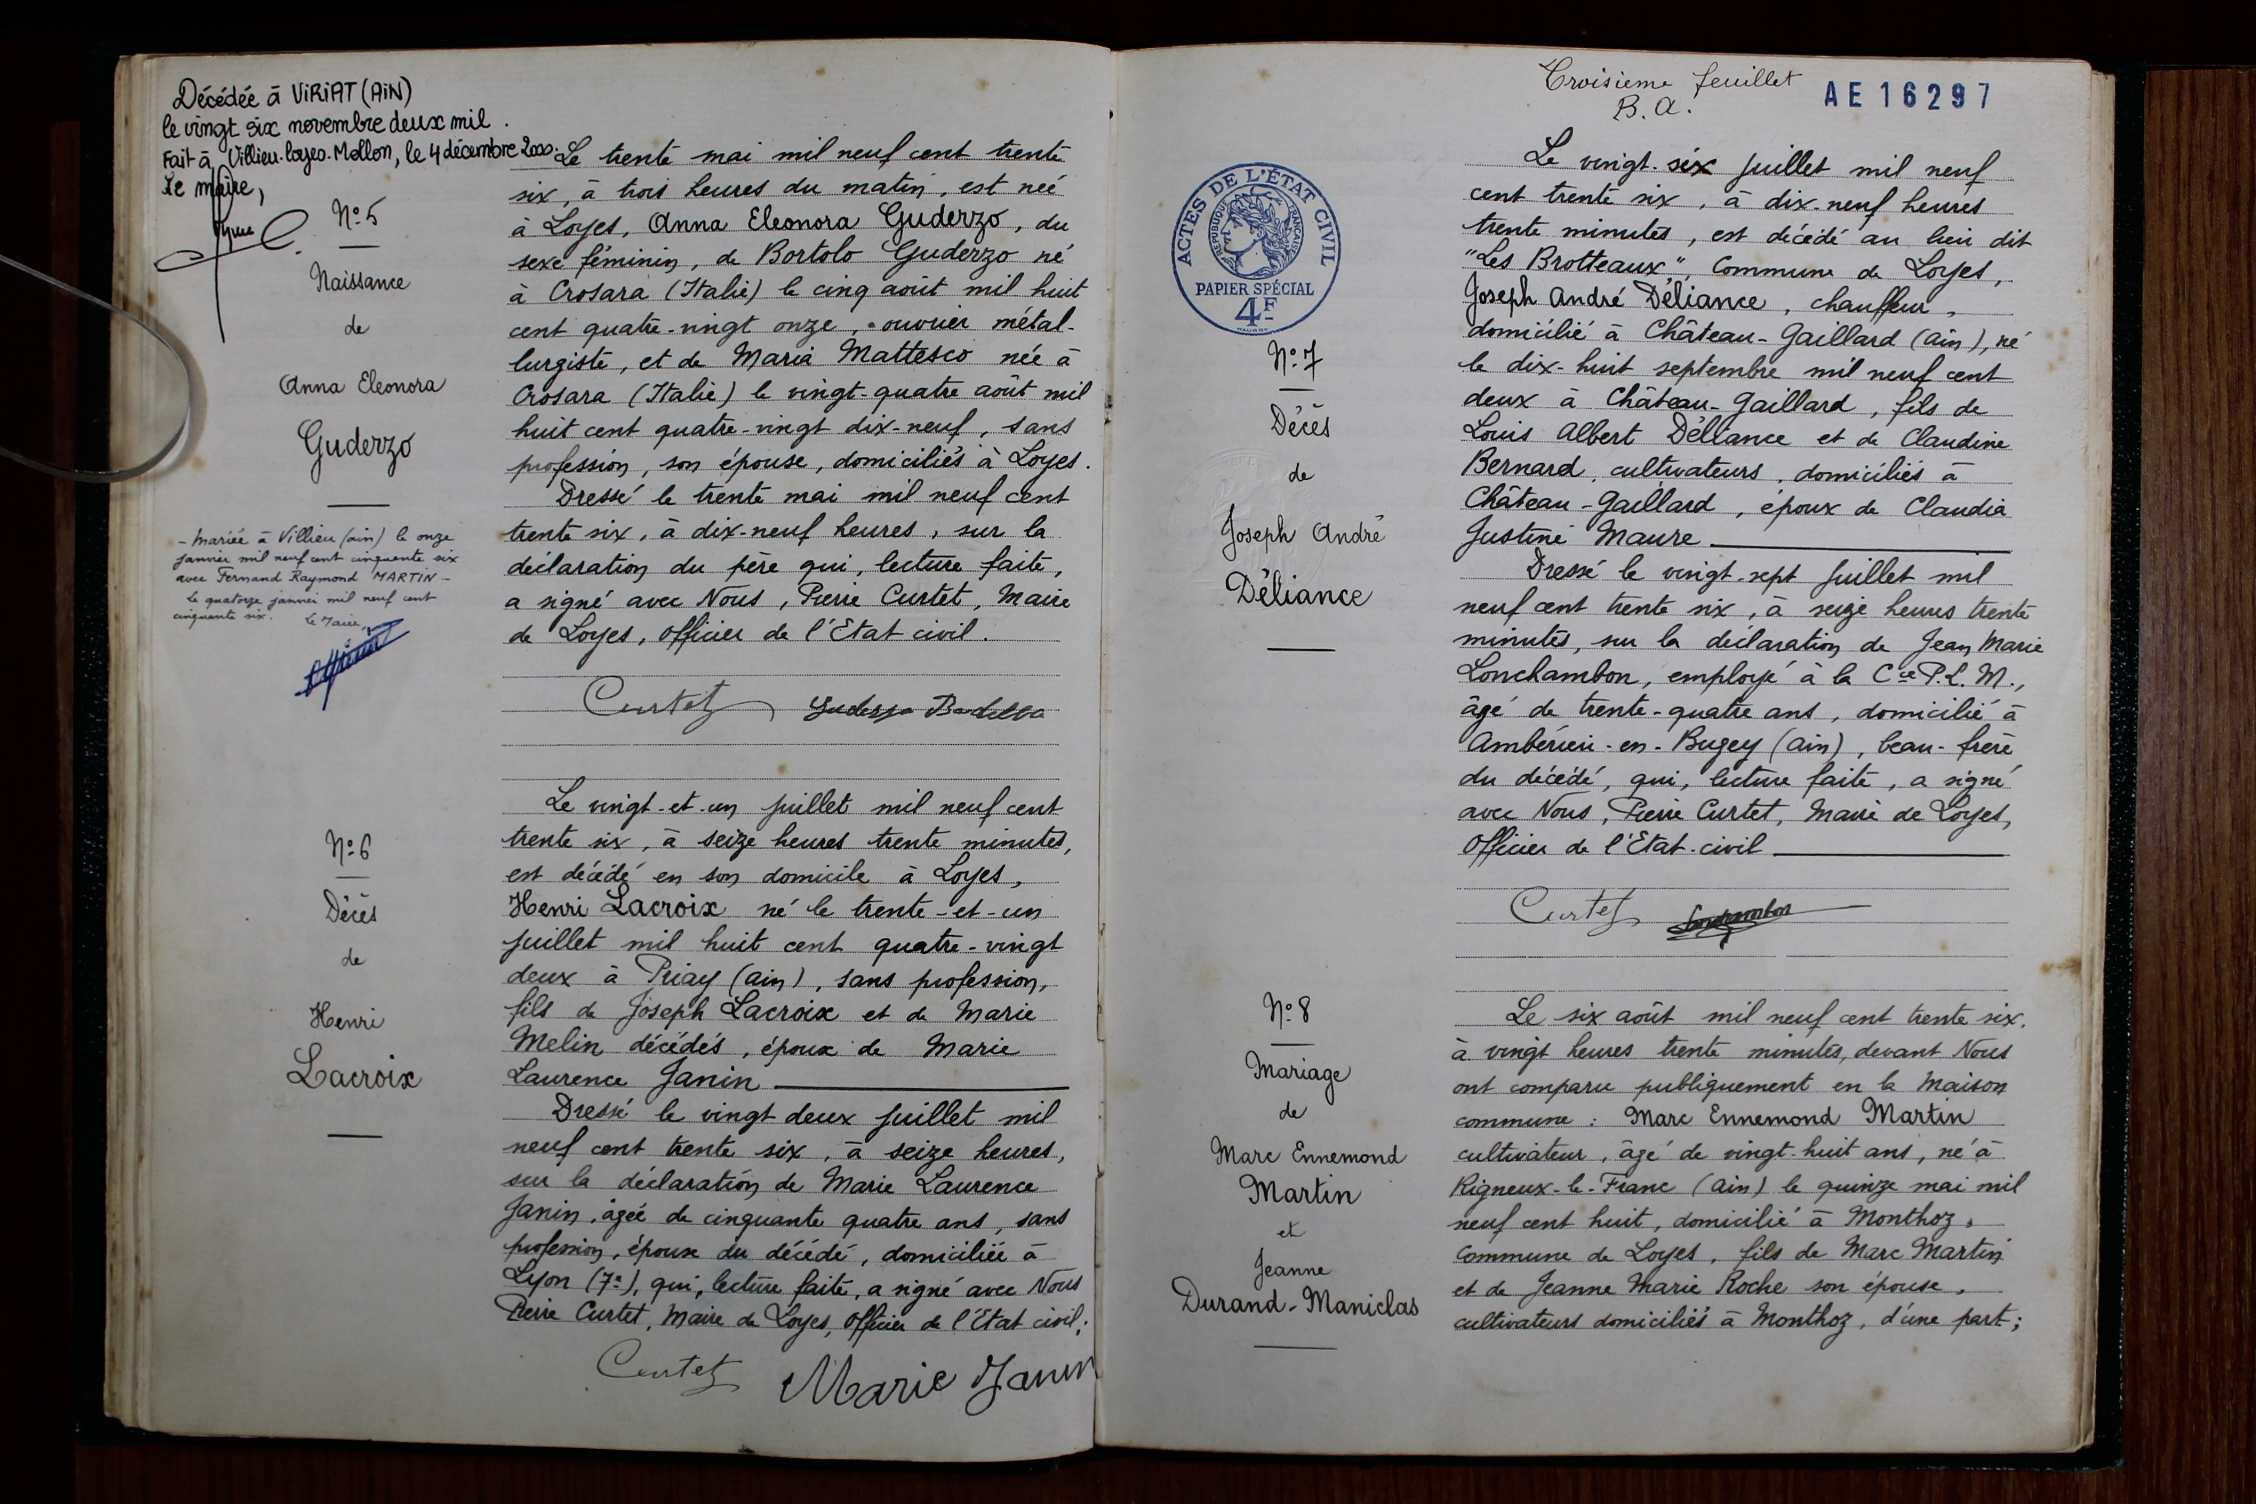 Décédée à VIRIAT (AIN)
le vingt six novembre deux mil.
Fait à Villieu-Loyes-Mollon, le 4 décembre 2000.
Le maire,
N° 5
Naissance
de
Anna Eleonora
Guderzo
- Mariée à Villieu (Ain) le onze
janvier mil neuf cent cinquante six
avec Fernand Raymond MARTIN -
Le quatorze janvier mil neuf cent
cinquante six. Le Maire,
Le trente mai mil neuf cent trente
six, à trois heures du matin, est née
à Loyes, Anna Eleonora Guderzo, du
sexe féminin, de Bortolo Guderzo né
à Crosara (Italie) le cinq août mil huit
cent quatre-vingt onze, ouvrier métal-
lurgiste, et de Maria Mattesco née à
Crosara (Italie) le vingt-quatre août mil
huit cent quatre-vingt dix-neuf, sans
profession, son épouse, domiciliés à Loyes.
Dressé le trente mai mil neuf cent
trente six, à dix-neuf heures, sur la
déclaration du père qui, lecture faite,
a signé avec Nous, Pierre Curtet, Maire
de Loyes, Officier de l'Etat civil.
Curtet Guderzo
N° 6
Décès
de
Henri
Lacroix
Le vingt-et-un juillet mil neuf cent
trente six, à seize heures trente minutes,
est décédé en son domicile à Loyes,
Henri Lacroix né le trente-et-un
juillet mil huit cent quatre-vingt
deux à Priay (Ain), sans profession,
fils de Joseph Lacroix et de Marie
Melin décédés, époux de Marie
Laurence Janin
Dressé le vingt deux juillet mil
neuf cent trente six, à seize heures,
sur la déclaration de Marie Laurence
Janin, âgée de cinquante quatre ans, sans
profession, épouse du décédé, domiciliée à
Lyon (7e), qui, lecture faite, a signé avec Nous
Pierre Curtet, Maire de Loyes, Officier de l'Etat civil;
Curtet Marie Janin
Troisieme feuillet
B. A.
AE 16297
ACTES DE L'ÉTAT CIVIL
RÉPUBLIQUE FRANÇAISE
PAPIER SPÉCIAL
4F
N° 7
Décès
de
Joseph André
Déliance
Le vingt-six juillet mil neuf
cent trente six, à dix-neuf heures
trente minutes, est décédé au lieu dit
"Les Brotteaux", Commune de Loyes,
Joseph André Déliance, chauffeur,
domicilié à Château-Gaillard (Ain), né
le dix-huit septembre mil neuf cent
deux à Château-Gaillard, fils de
Louis Albert Déliance et de Claudine
Bernard, cultivateurs, domiciliés à
Château-Gaillard, époux de Claudia
Justine Maure
Dressé le vingt-sept juillet mil
neuf cent trente six, à seize heures trente
minutes, sur la déclaration de Jean Marie
Lonchambon, employé à la Cie P.L.M.,
âgé de trente-quatre ans, domicilié à
Ambérieu-en-Bugey (Ain), beau-frère
du décédé, qui, lecture faite, a signé
avec Nous, Pierre Curtet, Maire de Loyes,
Officier de l'Etat-civil
Curtet Lonchambon
N° 8
Mariage
de
Marc Ennemond
Martin
et
Jeanne
Durand-Maniclas
Le six août mil neuf cent trente six,
à vingt heures trente minutes, devant Nous
ont comparu publiquement en la Maison
commune : Marc Ennemond Martin
cultivateur, âgé de vingt-huit ans, né à
Rigneux-le-Franc (Ain) le quinze mai mil
neuf cent huit, domicilié à Monthoz,
Commune de Loyes, fils de Marc Martin
et de Jeanne Marie Roche son épouse,
cultivateurs domiciliés à Monthoz, d'une part;